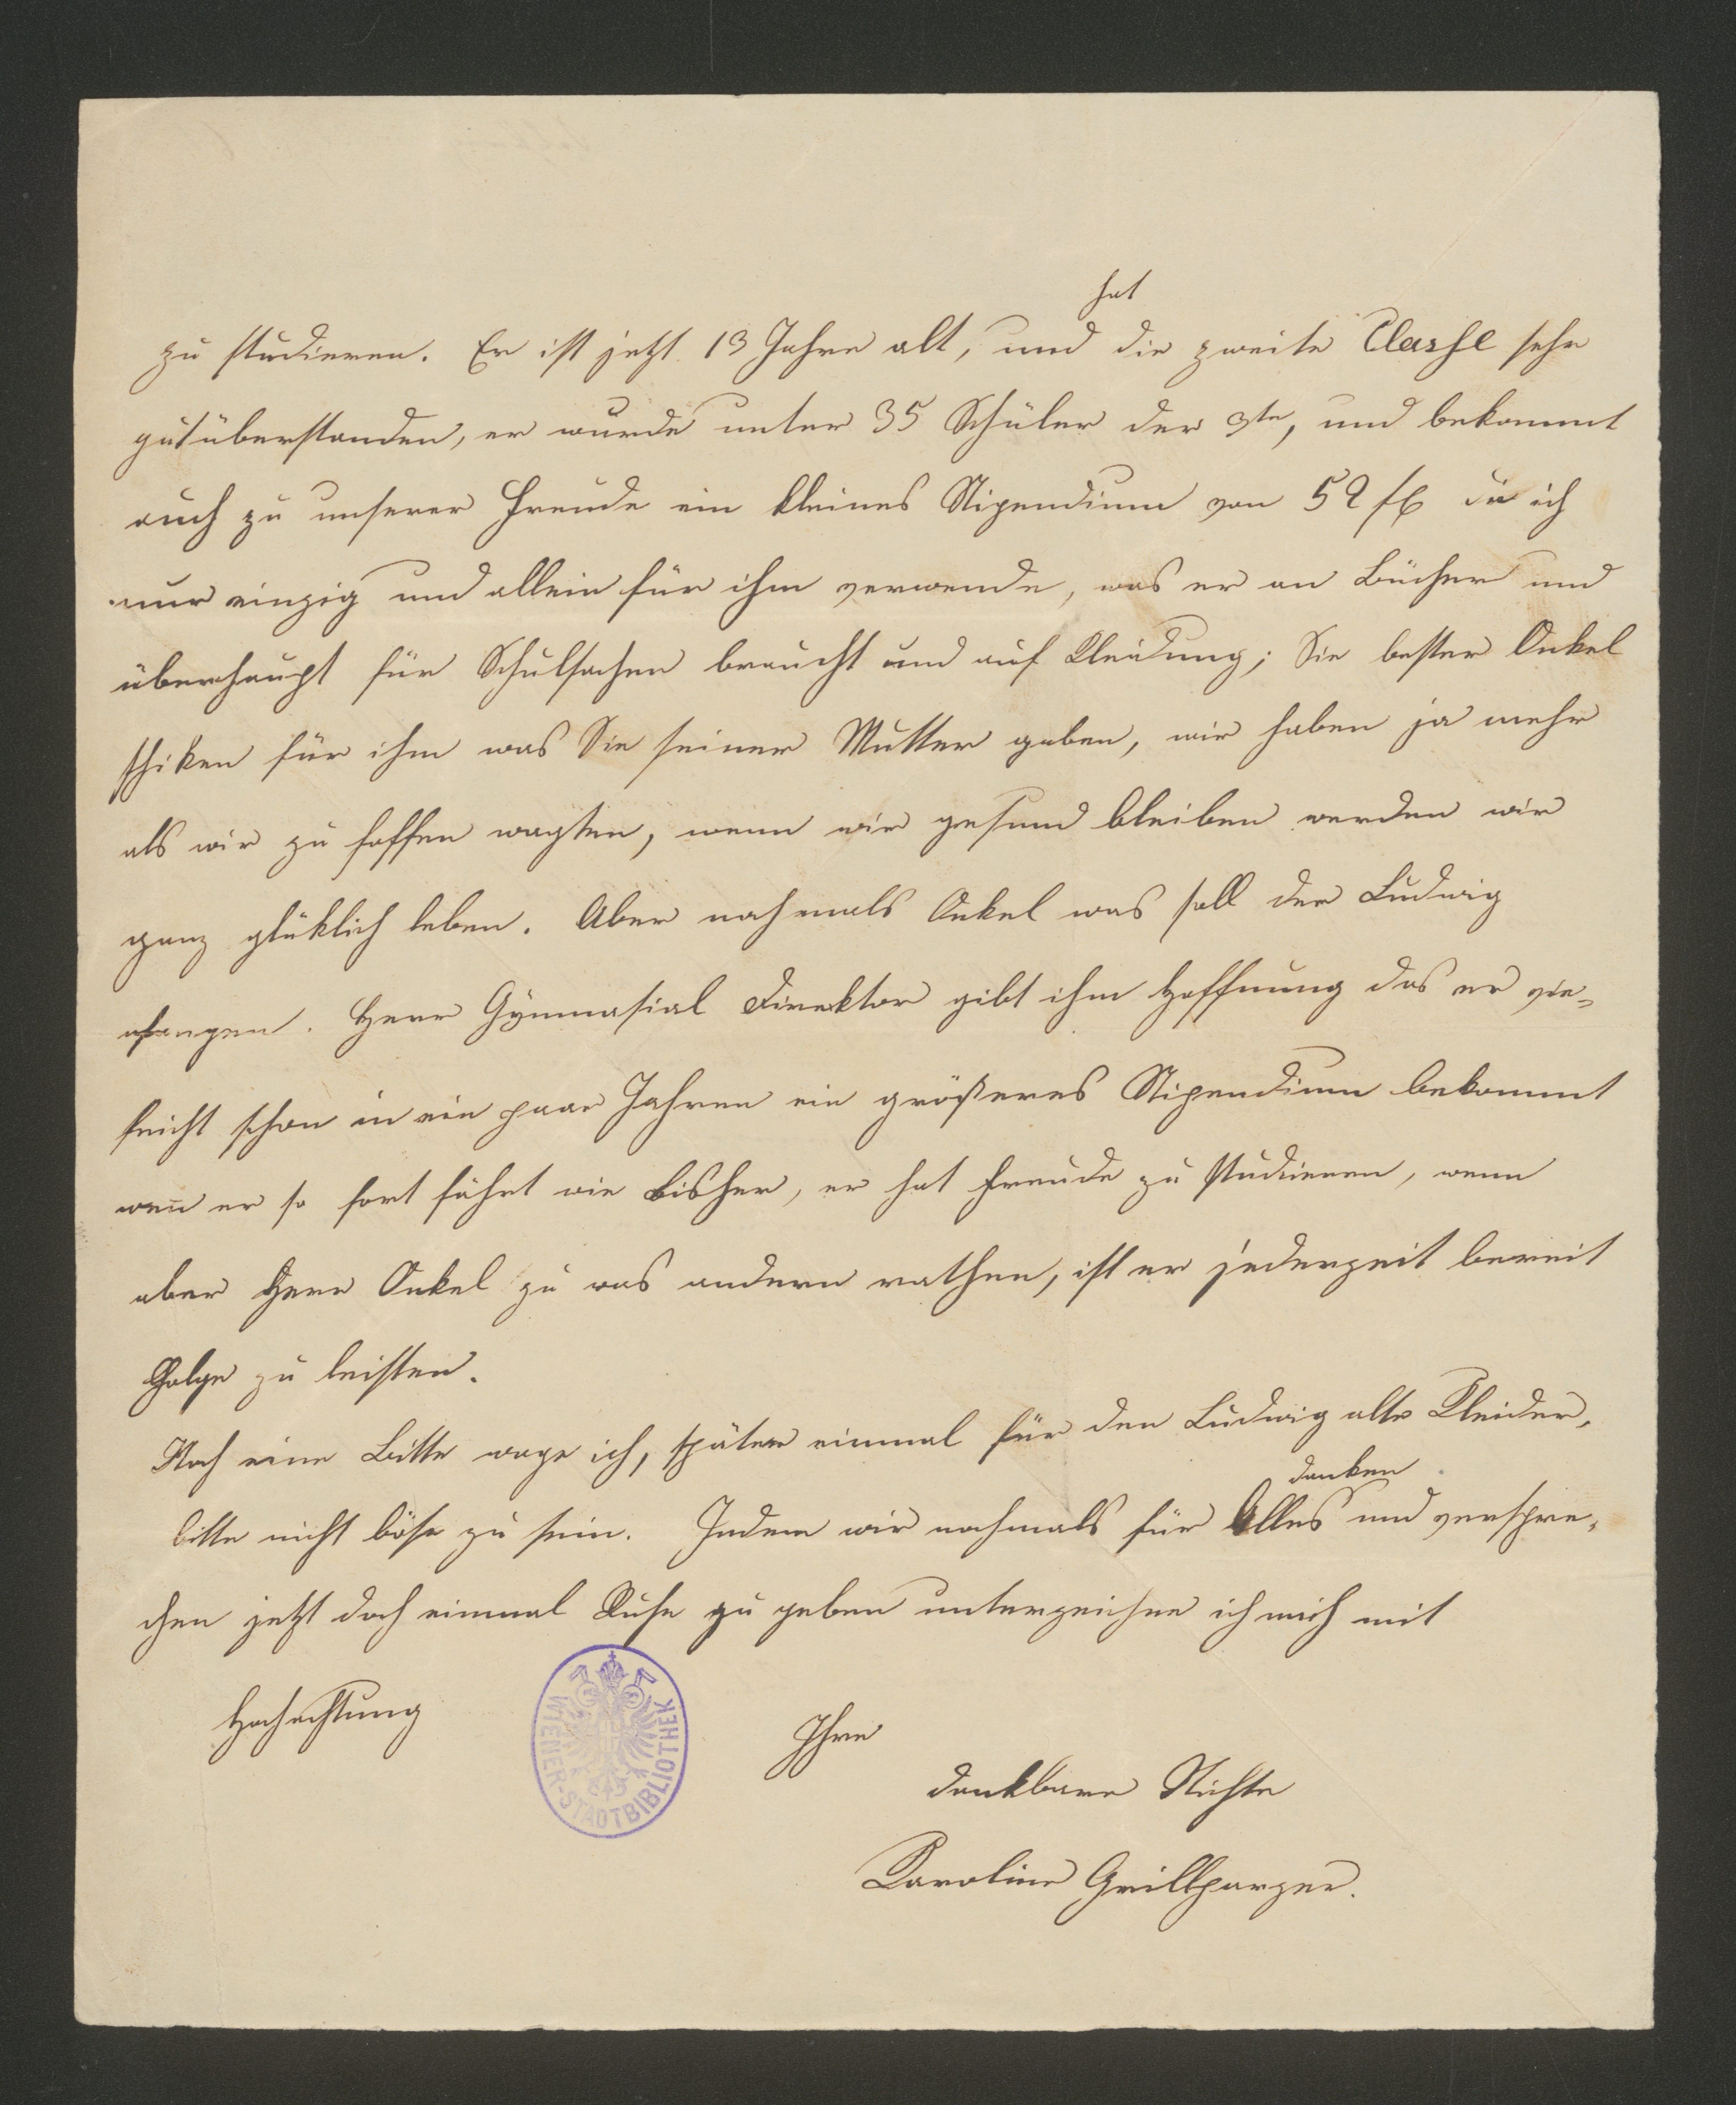 hat
zu studieren. Er ist jetzt 13 Jahre alt, und die zweite Classe sehr
gutüberstanden, er wurde unter 35 Schüler der 3te, und bekommt
auch zu unserer Freude ein kleines Stipendium von 52 fl die ich
nur einzig und allein für ihm verwende, was er an Bücher und
überhaupt für Schulsachen braucht und auf Kleidung; Sie bester Onkel
schiken für ihm was Sie seiner Mutter gaben, wir haben ja mehr
als wir zu hoffen wagten, wenn wir gesund bleiben werden wir
ganz glüklich leben. Aber nochmals Onkel was soll der Ludwig
anfangen. Herr Gymnasial Direktor gibt ihm Hoffnung das er vie-
leicht schon in ein paar Jahren ein größeres Stipendium bekommt
wen̄ er so fort fährt wie bisher, er hat Freude zu studieren, wenn
aber Herr Onkel zu was andern rathen, ist er jederzeit bereit
Folge zu leisten.
Noch eine Bitte wage ich, später einmal für den Ludwig alte Kleider,
danken
bitte nicht böse zu sein. Indem wir nochmals für Alles und verspre-
chen jetzt doch einmal Ruhe zu geben unterzeichne ich mich mit
Hochachtung
Ihre
dankbare Nichte
Karoline Grillparzer.
WIENER-STADTBIBLIOTHEK